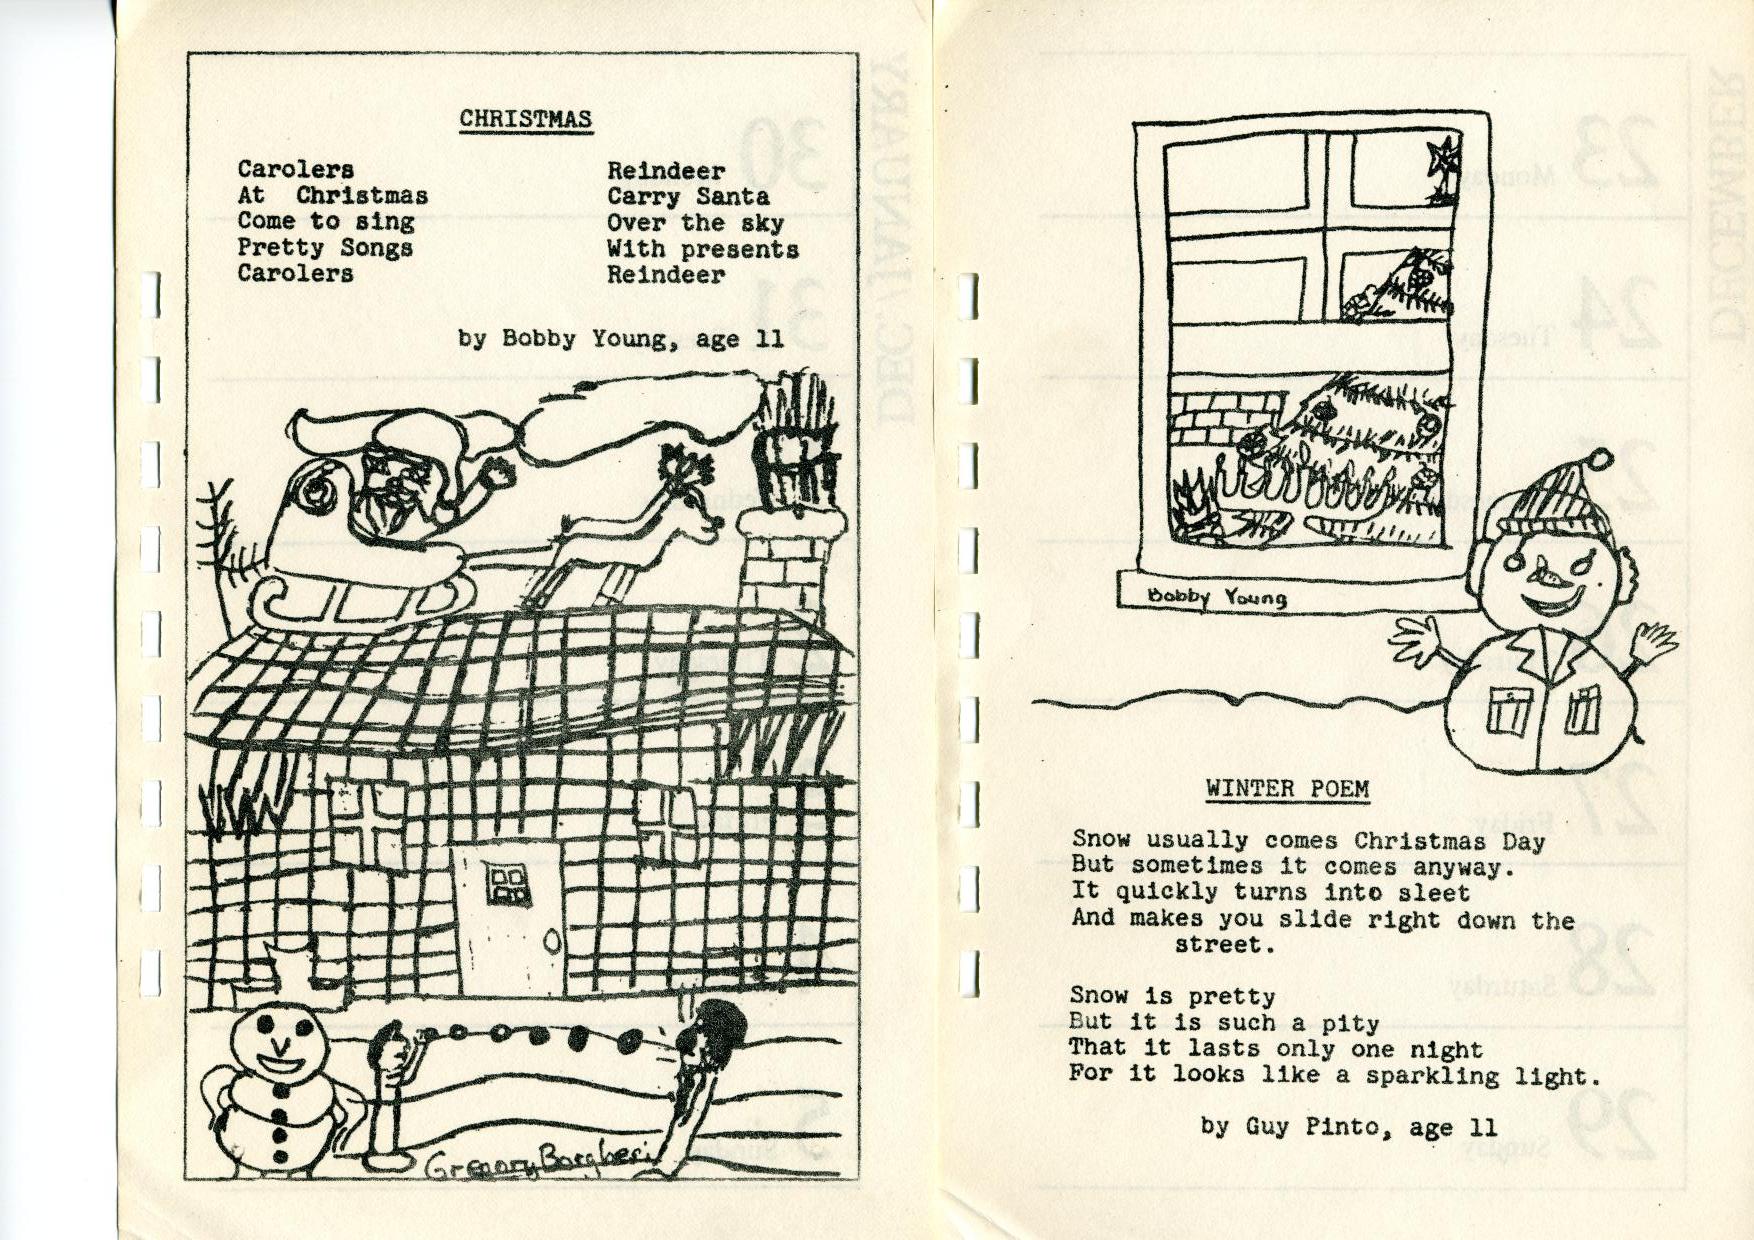 CHRISTMAS
Carolers
At Christmas
Come to sing
Pretty Songs
Carolers
Reindeer
Carry Santa
Over the sky
With presents
Reindeer
by Bobby Young, age 11
Gregory Borgberi
DEC./JANUARY
30
31
Bobby Young
WINTER POEM
Snow usually comes Christmas Day
But sometimes it comes anyway.
It quickly turns into sleet
And makes you slide right down the
street.
Snow is pretty
But it is such a pity
That it lasts only one night
For it looks like a sparkling light.
by Guy Pinto, age 11
DECEMBER
Monday 23
Tuesday 24
Friday 27
Saturday 28
Sunday 29